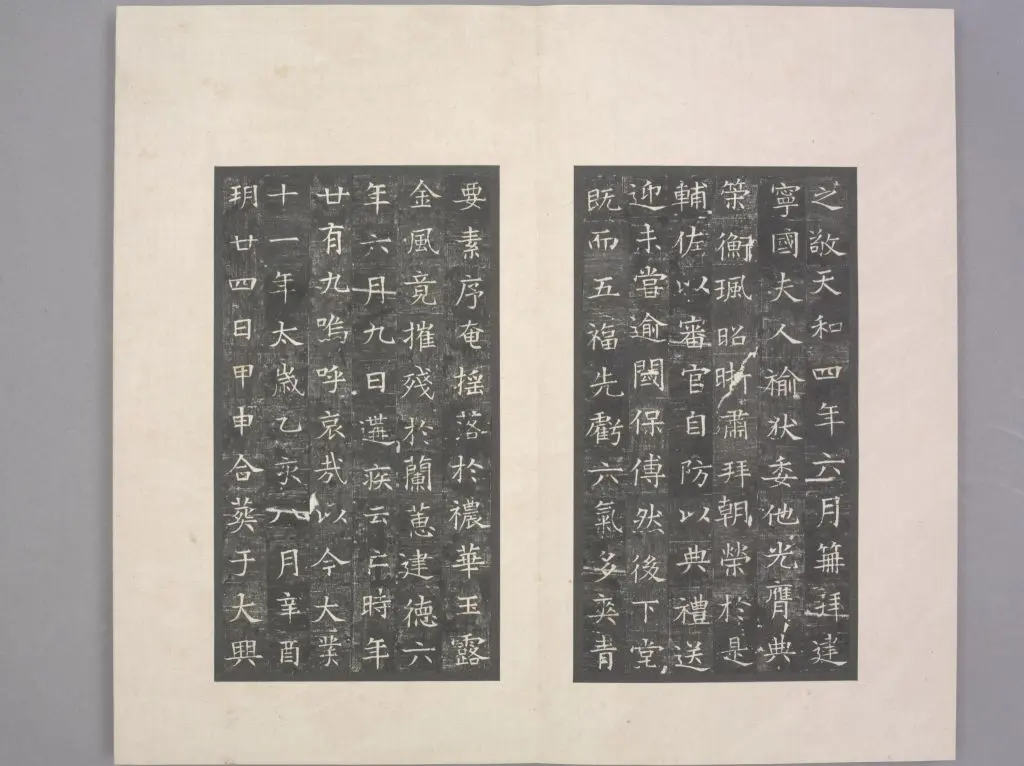 之敬天和四年六月笧拜建
寧國夫人褕狄委他光膺典
策衡珮昭晰肅拜朝榮於是
輔佐以審官自防以典禮送
迎未嘗逾閾保傅然後下堂
既而五福先虧六氣多爽青
要素序奄搖落於穠華玉露
金風竟摧殘於蘭蕙建德六
年六月九日遘疾云亡時年
廿有九嗚呼哀哉以今大業
十一年太歲乙亥八月辛酉
朔廿四日甲申合葬于大興